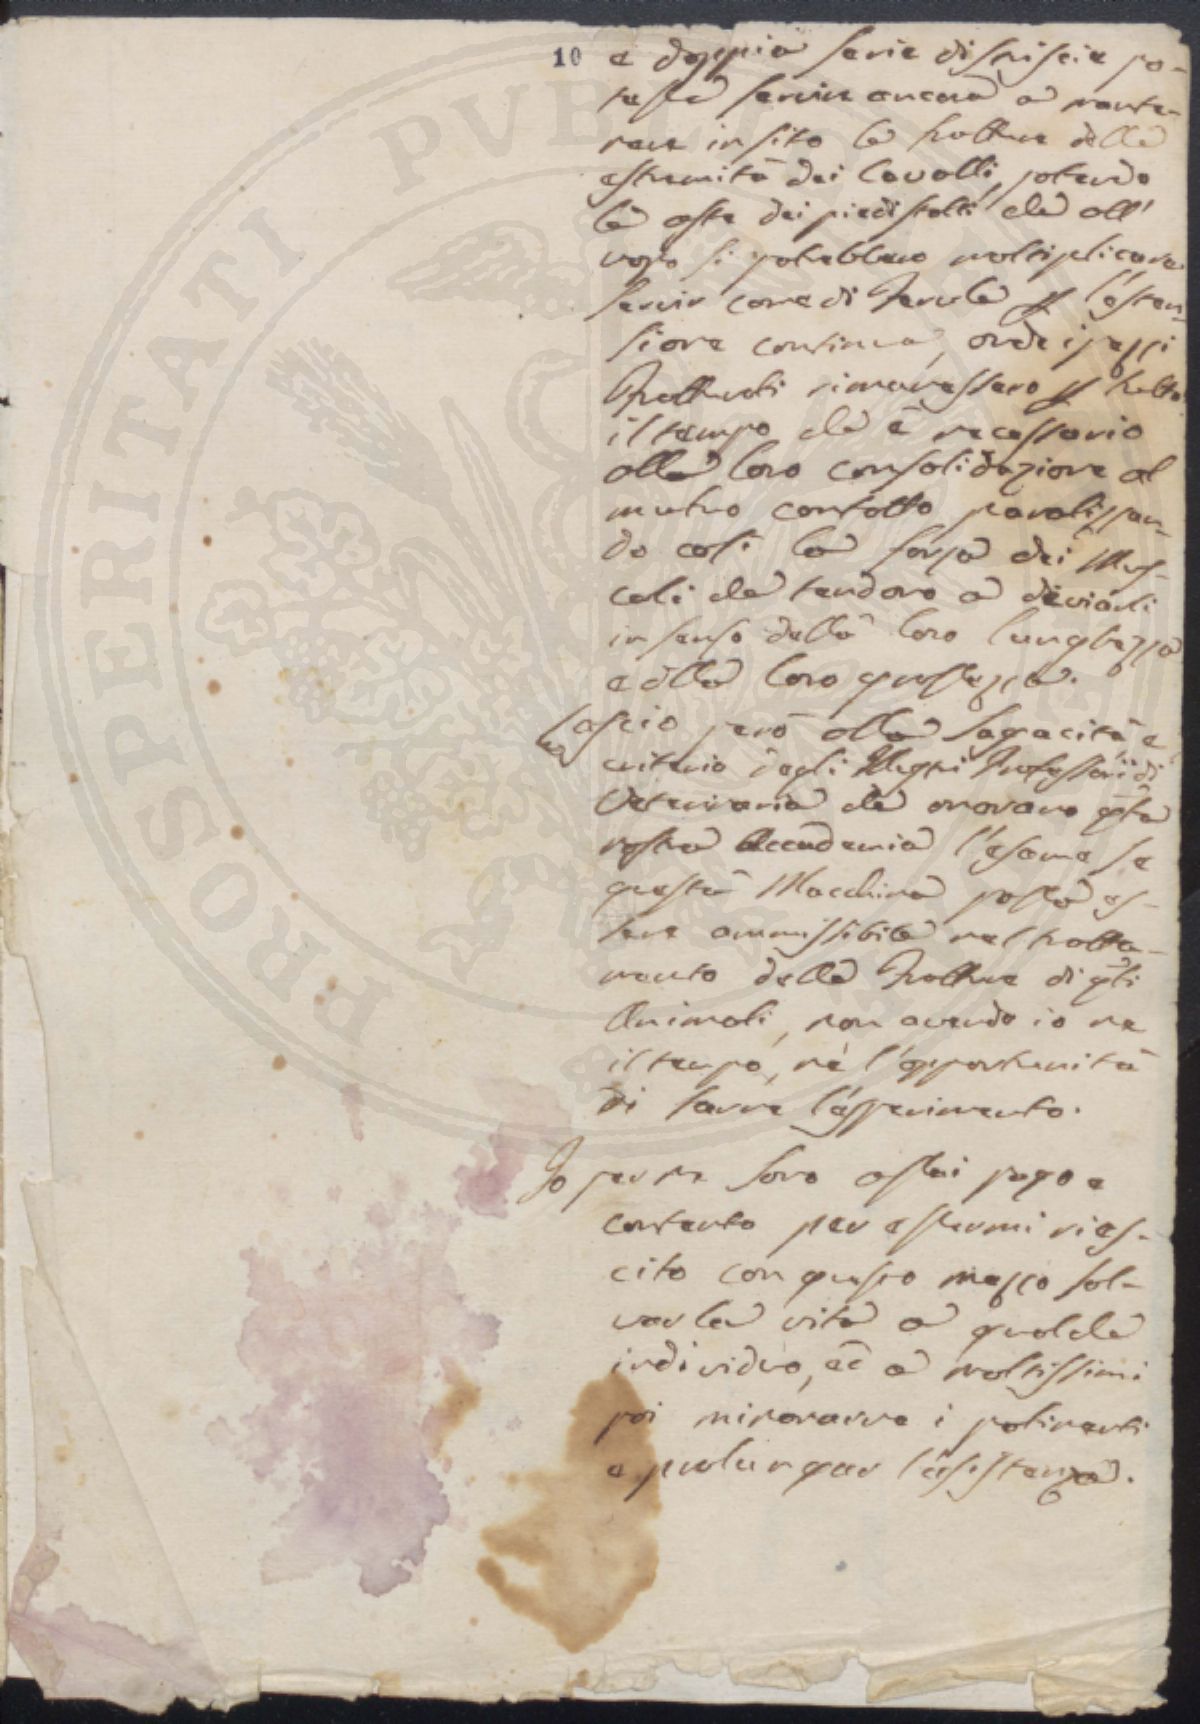 10
e doppia serie di striscie po-
tesse servire ancora a mante-
nere in sito le fratture delle
estremità dei Cavalli, potendo
le aste dei piedistalli che all'
uopo si potrebbero moltiplicare
servir come di ferule p l'esten-
sione continua, onde i pezzi
fratturati rimanessero p tutto
il tempo che è necessario
alla loro consolidazione al
mutuo contatto paralizzan-
do così la forza dei Mus-
coli che tendono a deviarli
in senso della loro lunghezza
e della loro grossezza.
Lascio però alla sagacità e
criterio degli Illustri Professori di
Veterinaria che onorano qta
nostra Accademia l'esame se
questa Macchina possa es-
sere ammissibile nel tratta-
mento delle fratture di qti
Animali, non avendo io ne
il tempo, nè l'opportunità
di farne l'esperimento.
Io per me sono assai pago e
contento per essermi ries-
cito con questo mezzo sal-
var la vita a qualche
individuo, ed a moltissimi
poi minorarne i patimenti
e prolungar l'esistenza.
PROSPERITATI PVBLICAE